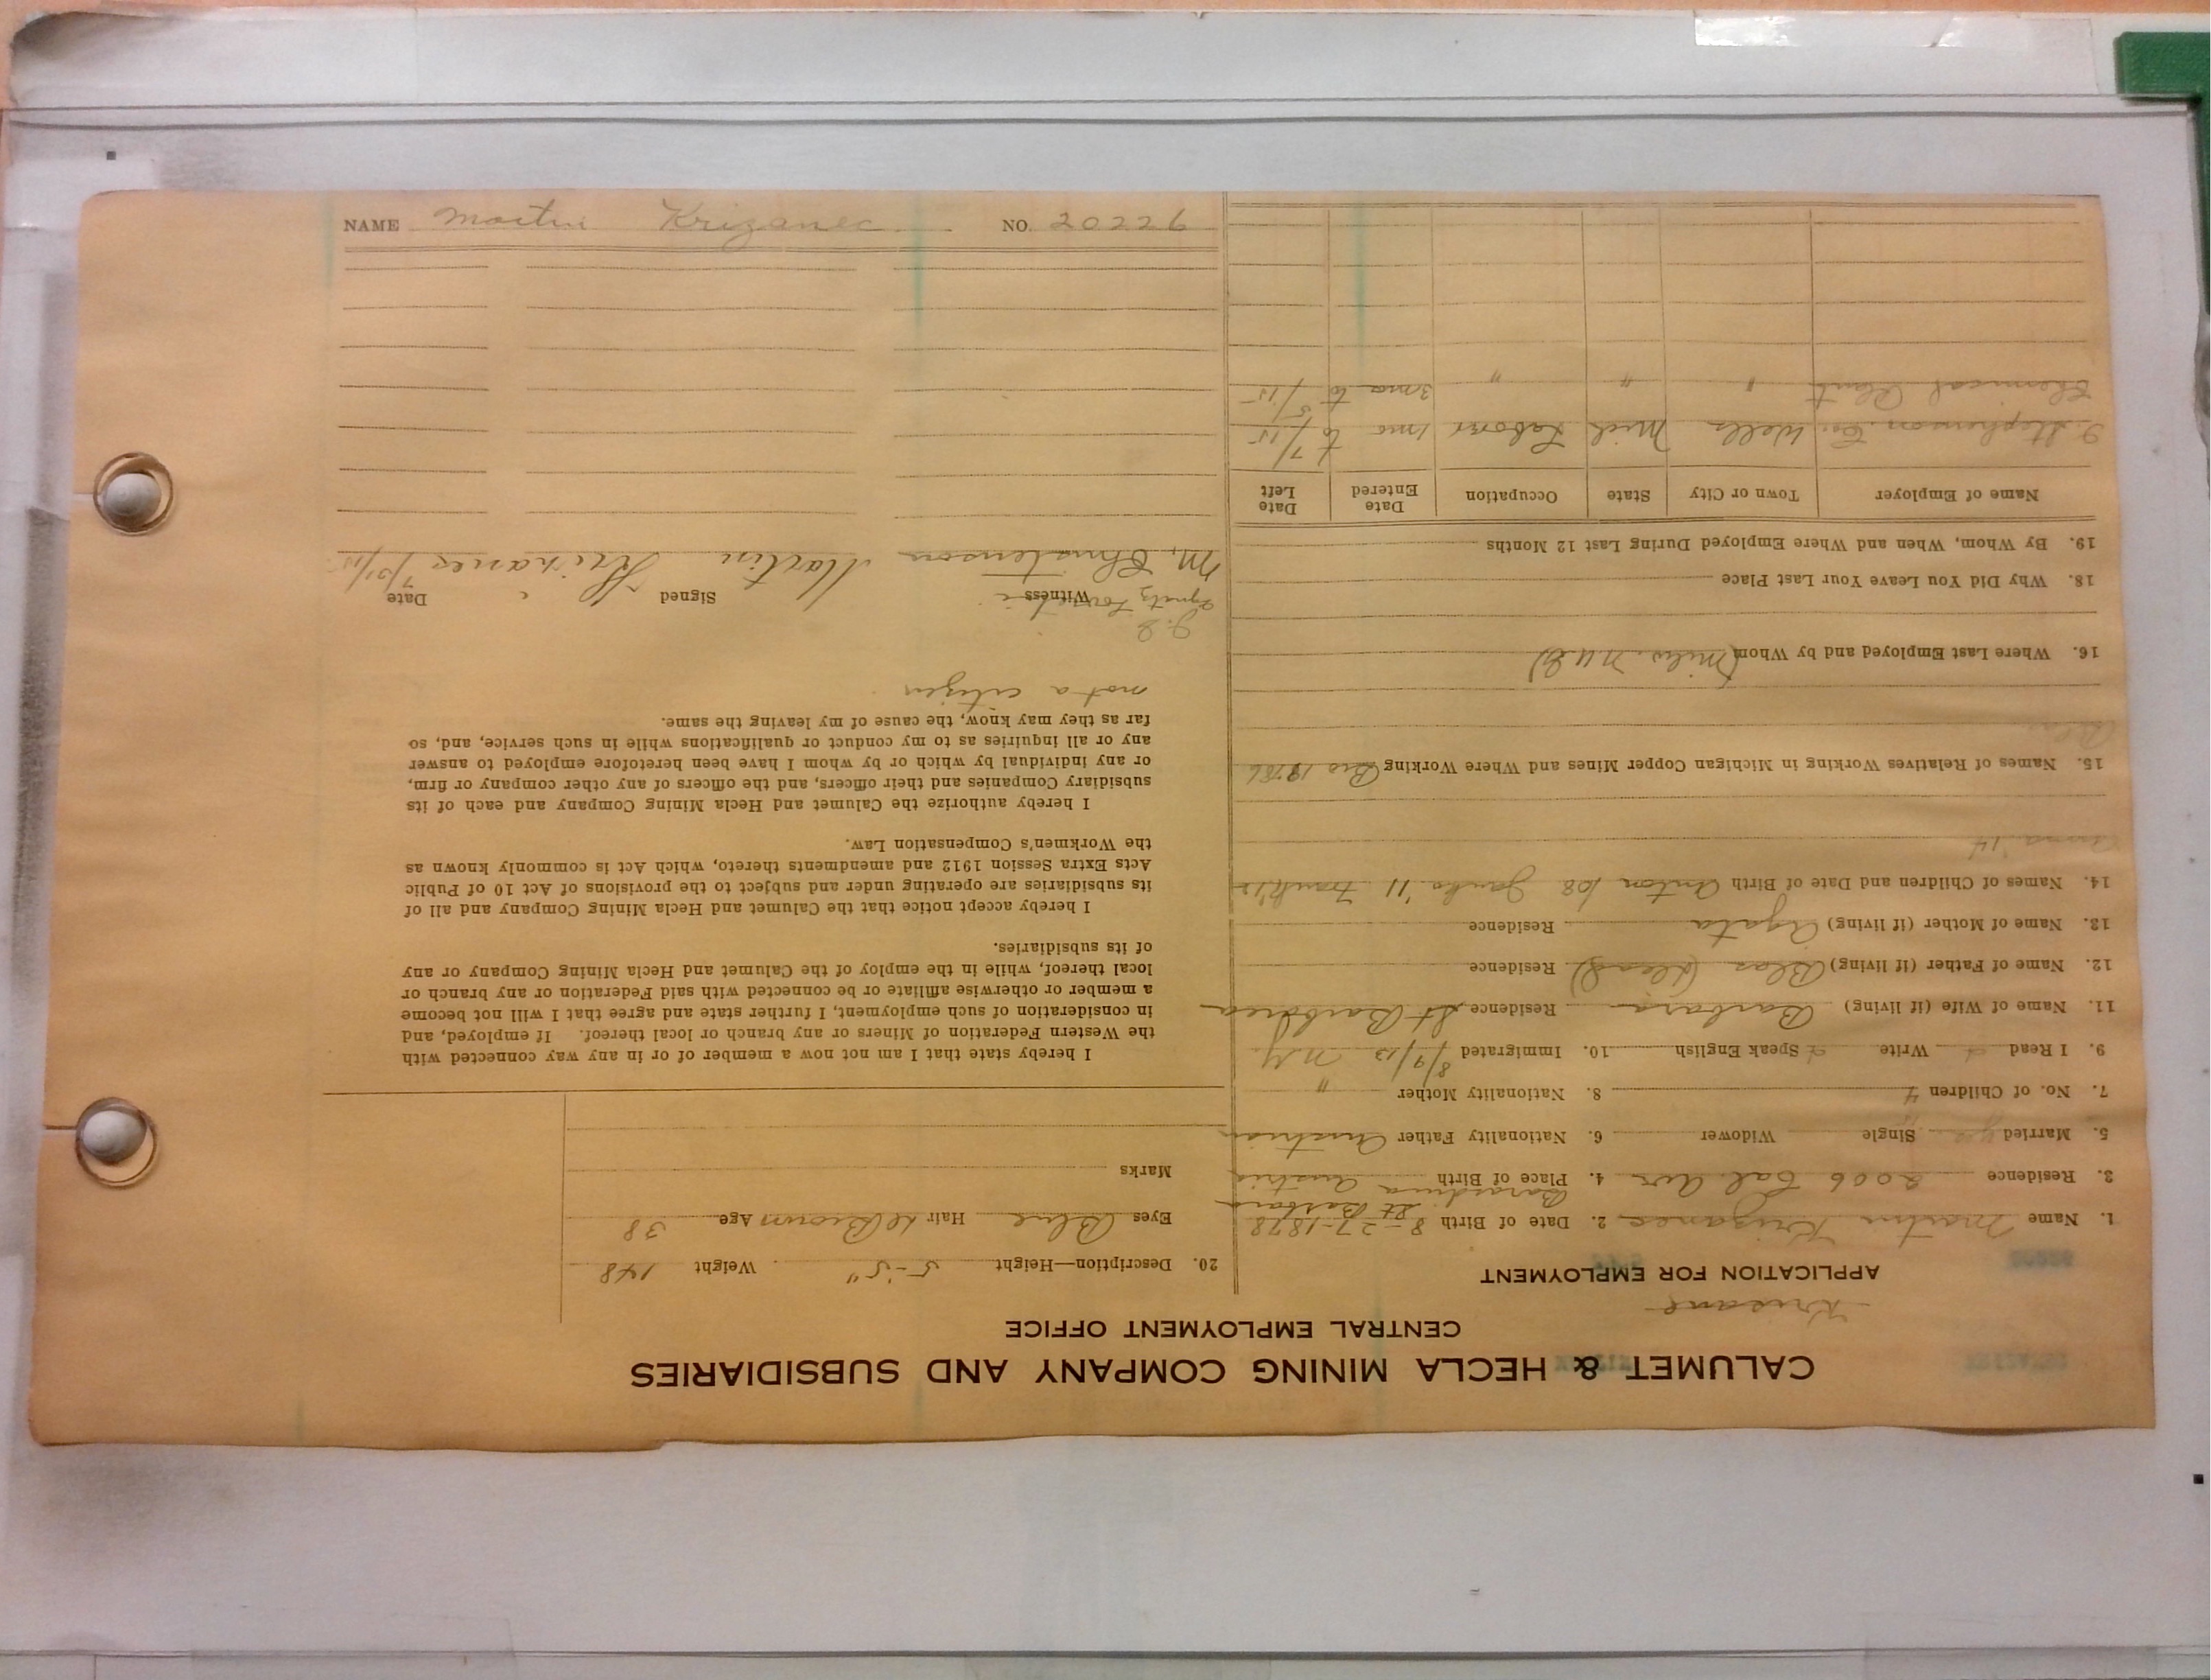 CALUMET & HECLA MINING COMPANY AND SUBSIDIARIES
CENTRAL EMPLOYMENT OFFICE
APPLICATION FOR EMPLOYMENT
1. Name Martin Krizanec 2. Date of Birth 8-27-1878
St Barbara
3. Residence 2006 Cal. Ave 4. Place of Birth Austria
5. Married yes Single Widower 6. Nationality Father Austrian
7. No. of Children 4 8. Nationality Mother "
9. I Read Write Speak English 10. Immigrated 8/9/13 N.Y.
11. Name of Wife (if living) Barbara Residence St Barbara
12. Name of Father (if living) Blas (dead) Residence
13. Name of Mother (if living) Agata Residence
14. Names of Children and Date of Birth Anton '08 Janko '11 Frank '12
Anna '14
15. Names of Relatives Working in Michigan Copper Mines and Where Working Bro
16. Where Last Employed and by Whom
18. Why Did You Leave Your Last Place
19. By Whom, When and Where Employed During Last 12 Months
Name of Employer Town or City State Occupation Date Entered Date Left
I. Stephenson Co. Wells Mich Laborer 1 mo to 7/15
Chemical Plant " " " 3 mo to 5/15
20. Description—Height 5-5" Weight 148
Eyes Blue Hair d Brown Age 38
Marks
I hereby state that I am not now a member of or in any way connected with
the Western Federation of Miners or any branch or local thereof. If employed, and
in consideration of such employment, I further state and agree that I will not become
a member or otherwise affiliate or be connected with said Federation or any branch or
local thereof, while in the employ of the Calumet and Hecla Mining Company or any
of its subsidiaries.
I hereby accept notice that the Calumet and Hecla Mining Company and all of
its subsidiaries are operating under and subject to the provisions of Act 10 of Public
Acts Extra Session 1912 and amendments thereto, which Act is commonly known as
the Workmen's Compensation Law.
I hereby authorize the Calumet and Hecla Mining Company and each of its
subsidiary Companies and their officers, and the officers of any other company or firm,
or any individual by which or by whom I have been heretofore employed to answer
any or all inquiries as to my conduct or qualifications while in such service, and, so
far as they may know, the cause of my leaving the same.
not a citizen
Witness Signed Date
M. Christenson Martin 7/31/15
NAME Martin Krizanec NO. 20226